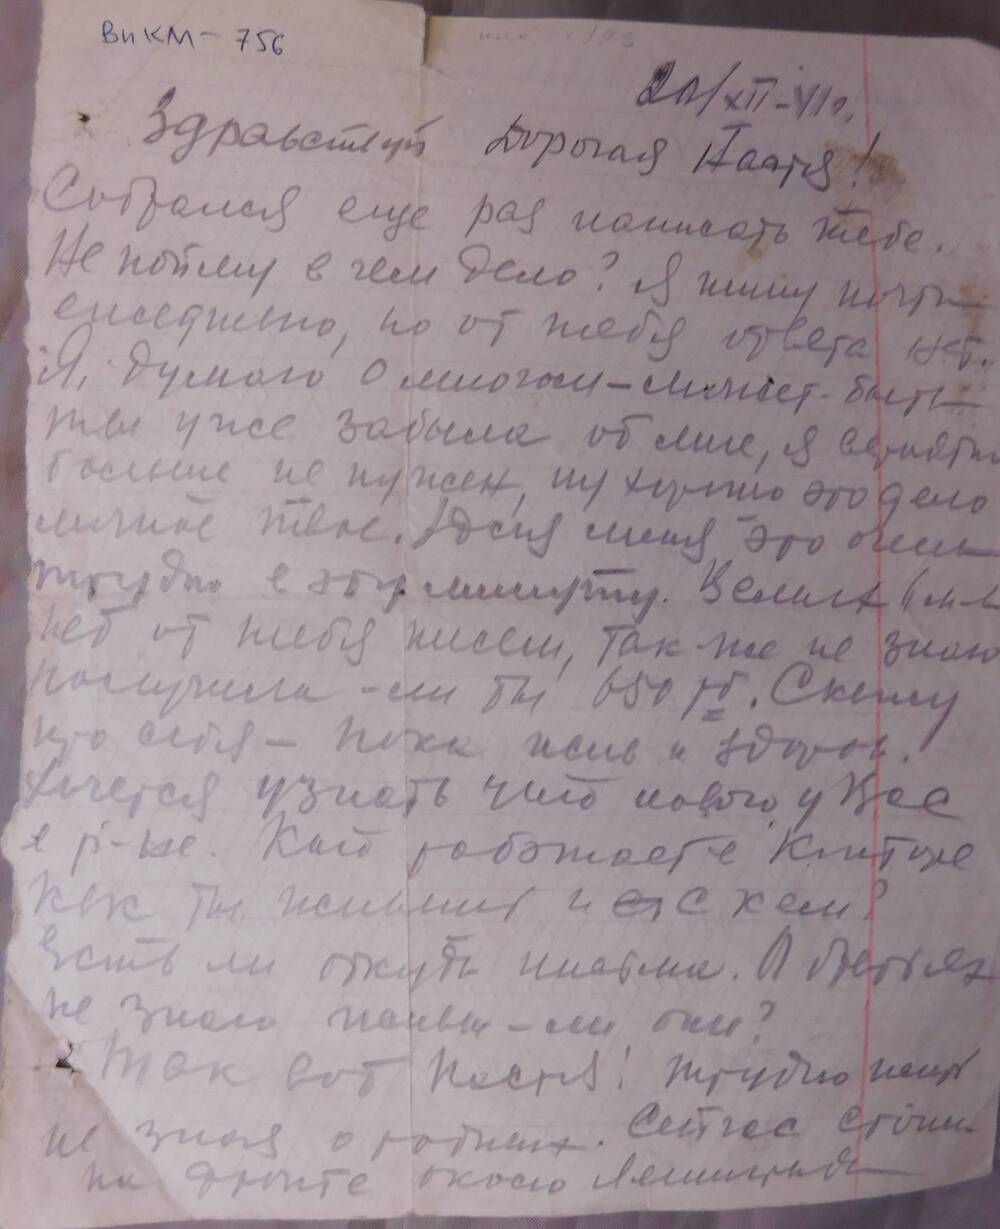 ВиКМ-756
20/XII-41г.
Здравствуй дорогая Настя!
Собрался еще раз написать тебе.
Не пойму в чем дело? Я пишу почти
ежедневно, но от тебя ответа нет.
Я, думаю о многом-может-быть
ты уже забыла об мне, я вероятно
больше не нужен, ну хорошо это дело
личное твое. Для меня это очень
трудно в эту минуту.
нет от тебя писем, так-же не знаю
получила-ли ты 650 рб. Скажу
про себя - пока жив и здоров.
Хочется узнать что нового у Вас
в р-не. Кто работает в конторе
как ты живешь и с кем?
Есть ли откуда письма. О братьях
не знаю живы-ли они?
Так вот Настя! трудно жить
не зная о родных. Сейчас стоим
на фронте около Ленинграда